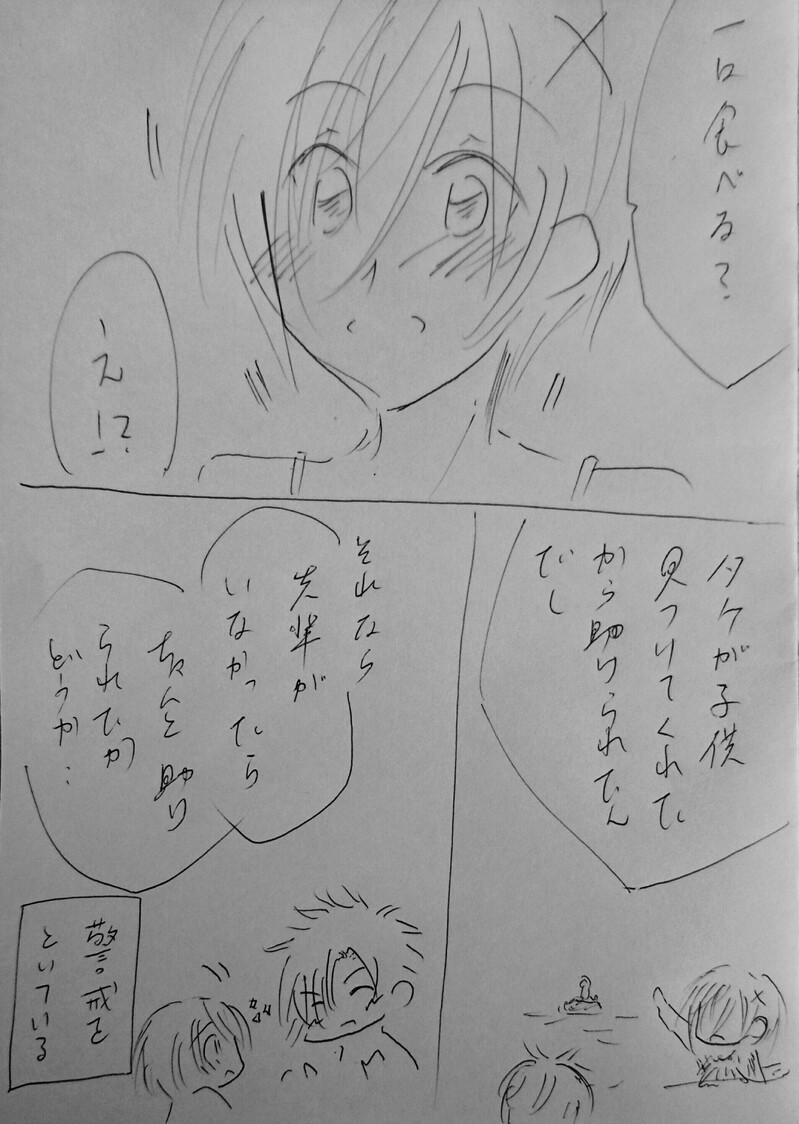 一口食べる？
え!?
タケが子供
見つけてくれた
から助けられたん
だし
それなら
先輩が
いなかったら
ちゃんと助け
られたか
どうか…
警戒を
といている